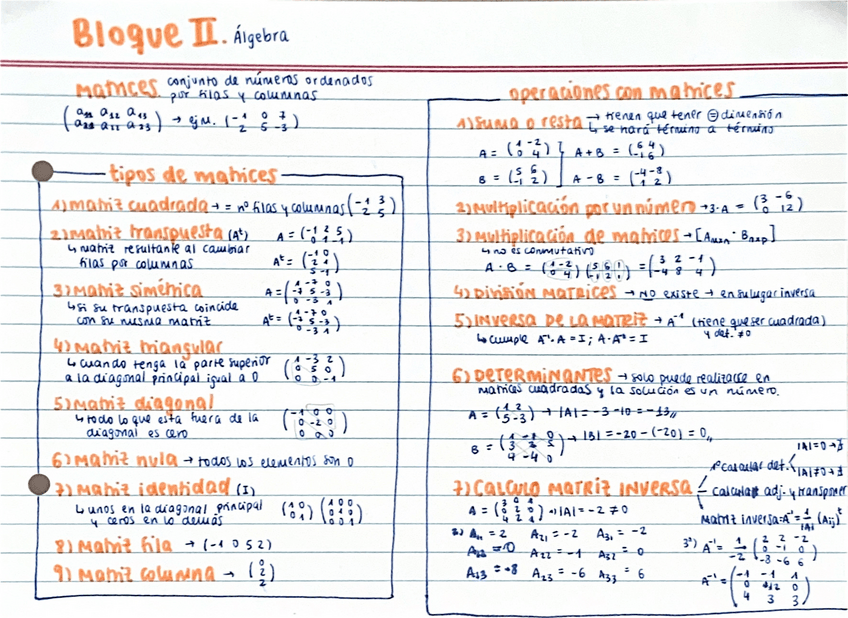 Bloque II. Álgebra
Matrices conjunto de números ordenados
por filas y columnas
→ ejm. (-1 0 7
2 5 -3)
tipos de matrices
1) matriz cuadrada → = nº filas y columnas (-1 3
-2 5)
2) Matriz transpuesta (Aᵗ) A = (-1 2 5
0 1 -1)
↳ matriz resultante al cambiar
filas por columnas Aᵗ = (-1 0
2 1
5 -1)
3) Matriz simétrica A = (1 -7 0
-7 5 -3
0 -3 1)
↳ si su transpuesta coincide
con su misma matriz Aᵗ = (1 -7 0
-7 5 -3
0 -3 1)
4) Matriz triangular
↳ cuando tenga la parte superior
a la diagonal principal igual a 0
(1 -3 2
0 5 0
0 0 -1)
5) Matriz diagonal
↳ todo lo que esta fuera de la
diagonal es cero
(-1 0 0
0 -2 0
0 0 )
6) Matriz nula → todos los elementos son 0
7) Matriz identidad (I)
↳ unos en la diagonal principal
y ceros en lo demás
(1 0
0 1)
8) Matriz fila → (-1 0 5 2)
9) Matriz columna → (0
2
2)
operaciones con matrices
1) Suma o resta → tienen que tener ⊜ dimensión
↳ se hará término a término
A = (1 -2
0 4) A + B = (6 4
-1 6)
B = (5 6
-1 2) A - B = (-4 -8
1 2)
2) Multiplicación por un número → 3·A = (3 -6
0 12)
3) Multiplicación de matrices → [Aₘₓₙ · Bₙₓₚ]
↳ no es conmutativo
A · B = (1 -2
0 4) (5 6 1
-1 2 1) = (3 2 -1
-4 8 4)
4) División MATRICES → NO existe → en su lugar inversa
5) INVERSA DE LA MATRIZ → A⁻¹ (tiene que ser cuadrada)
y det. ≠0
↳ cumple A⁻¹·A = I ; A·A⁻¹ = I
6) DETERMINANTES → solo puede realizarse en
matrices cuadradas y la solución es un número.
A = (1 2
5 -3) → |A| = -3 -10 = -13,,
→ |B| = -20 - (-20) = 0,,
7) CALCULO MATRIZ INVERSA
1º calcular det.
|A|=0 → ∄
|A|≠0 → ∃
calcular adj. y transponer
Matriz inversa = A⁻¹ = 1/|A| (Aij)ᵗ
A = (3 0 1
0 2 0
4 2 1) → |A| = -2 ≠ 0
2º) A₁₁ = 2 A₂₁ = -2 A₃₁ = -2
A₁₂ = 0 A₂₂ = -1 A₃₂ = 0
A₁₃ = -8 A₂₃ = -6 A₃₃ = 6
3º) A⁻¹ = 1/-2 (2 2 -2
0 -1 0
-8 -6 6)